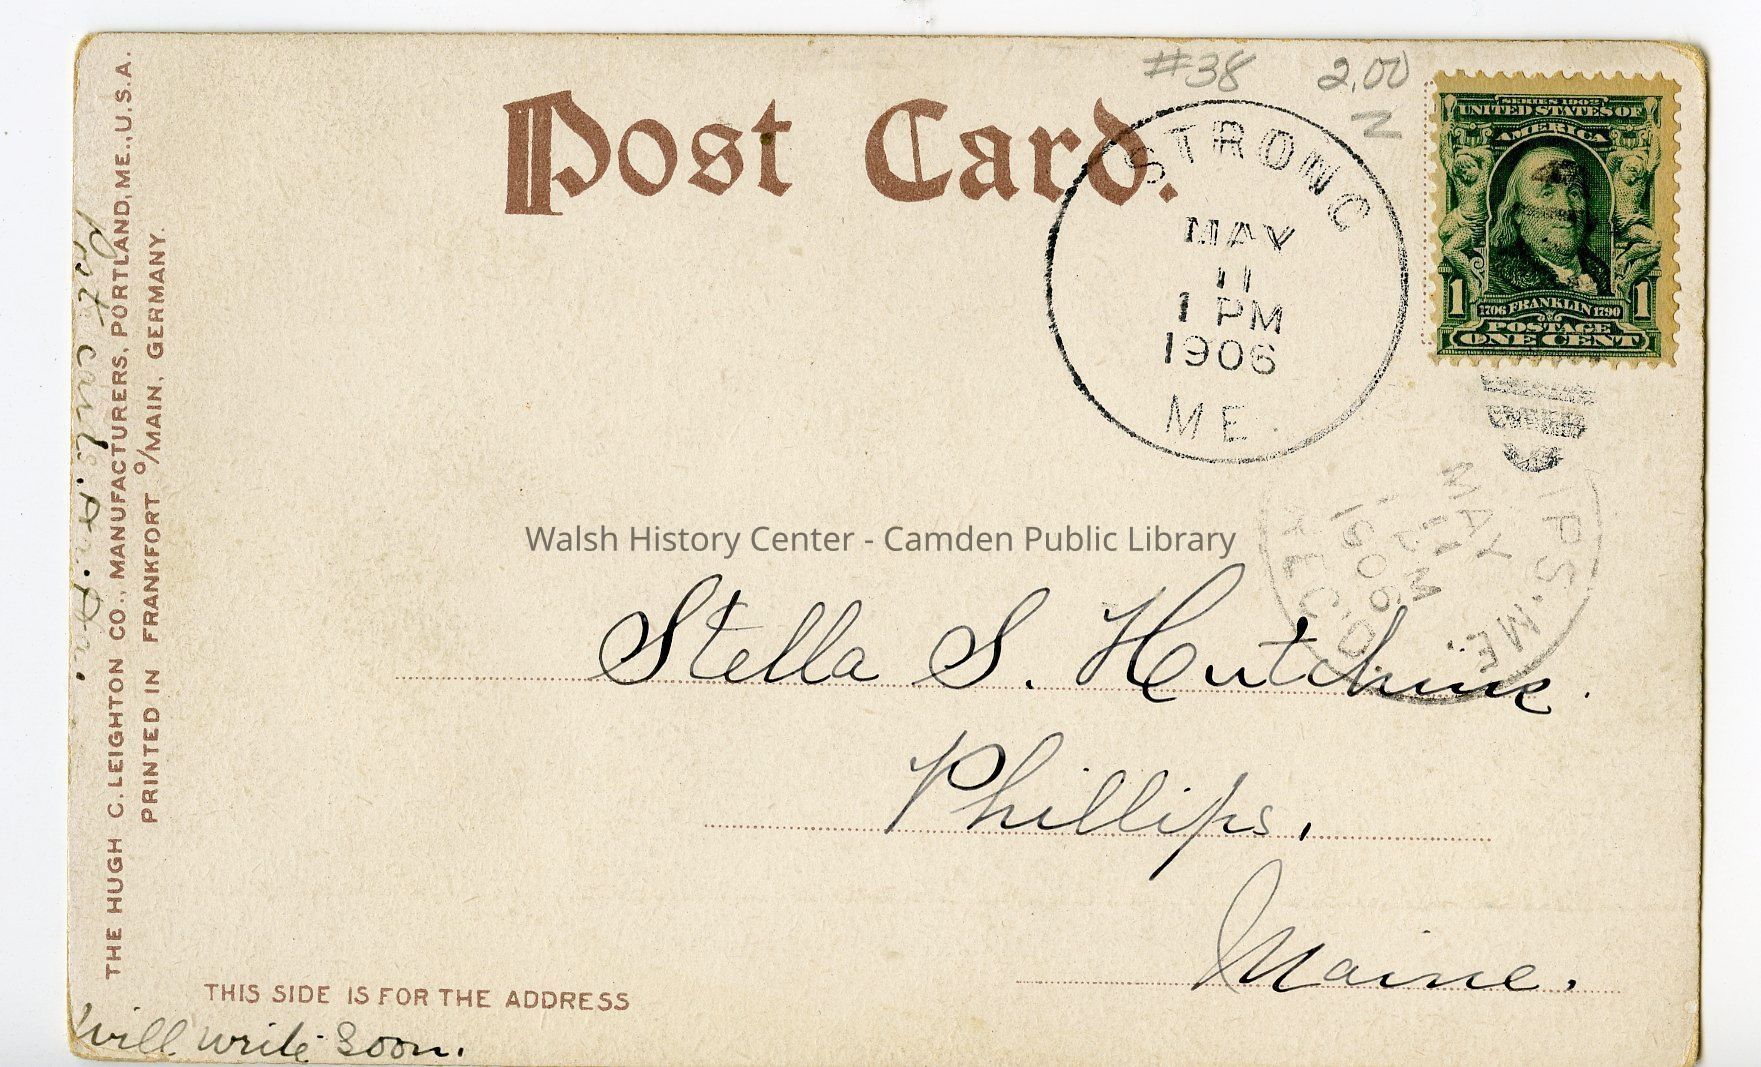 #38 2.00
N
Post Card.
STRONG
MAY
11
1 PM
1906
ME.
SERIES 1902
UNITED STATES OF
AMERICA
1 1706 FRANKLIN 1790 1
POSTAGE
ONE CENT
IPS. ME.
MAY
11
1906
REC'D.
Walsh History Center - Camden Public Library
Stella S. Hutchins.
Phillips.
Maine.
THIS SIDE IS FOR THE ADDRESS
will write soon.
THE HUGH C. LEIGHTON CO., MANUFACTURERS, PORTLAND, ME., U.S.A.
PRINTED IN FRANKFORT O/MAIN, GERMANY.